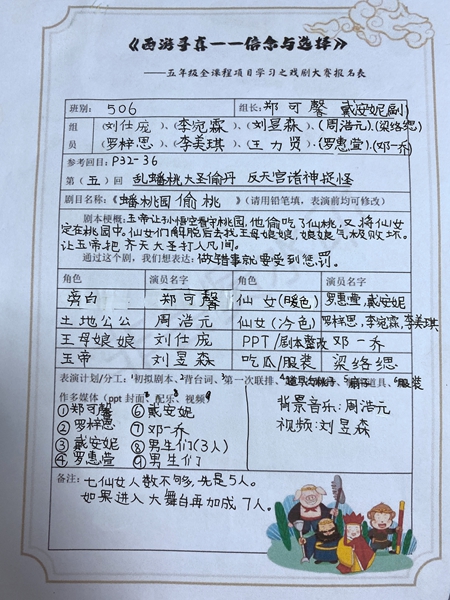 《西游寻真——信念与选择》
——五年级全课程项目学习之戏剧大赛报名表
班别：506 组长：郑可馨 戴安妮副
组 (刘仕庞)、(李宛霖)、(刘昱森)、(周浩元)、(梁络缌)
员 (罗梓思)、(李美琪)、(王力贤)、(罗惠萱)、(邓一乔)
参考回目：P32-36
第（五）回 乱蟠桃大圣偷丹 反天宫诸神捉怪
剧目名称：《蟠桃园偷桃》（请用铅笔填，表演前均可修改）
剧本梗概：玉帝让孙悟空看守桃园，他偷吃了仙桃，又将仙女
定在桃园中。仙女们解脱后去找王母娘娘，娘娘气极败坏。
让玉帝把齐天大圣打入凡间。
通过这个剧，我们想表达：做错事就要受到惩罚。
角色 演员名字 角色 演员名字
旁白 郑可馨 仙女(暖色) 罗惠萱，戴安妮
土地公公 周浩元 仙女(冷色) 罗梓思，李宛霖，李美琪
王母娘娘 刘仕庞 PPT/剧本整改 邓一乔
玉帝 刘昱森 吃瓜/服装 梁络缌
表演计划/分工：¹初拟剧本、²背台词、³第一次联排、 道具、⁶服装
作多媒体（ppt 封面⁷、配乐⁸、视频⁹
①郑可馨 ⑥戴安妮 背景音乐：周浩元
②罗梓思 ⑦邓一乔 视频：刘昱森
③戴安妮 ⑧男生们(3人)
④罗惠萱 ⑨男生们
备注：七仙女人数不够，先是5人。
如果进入大舞台再加成7人。